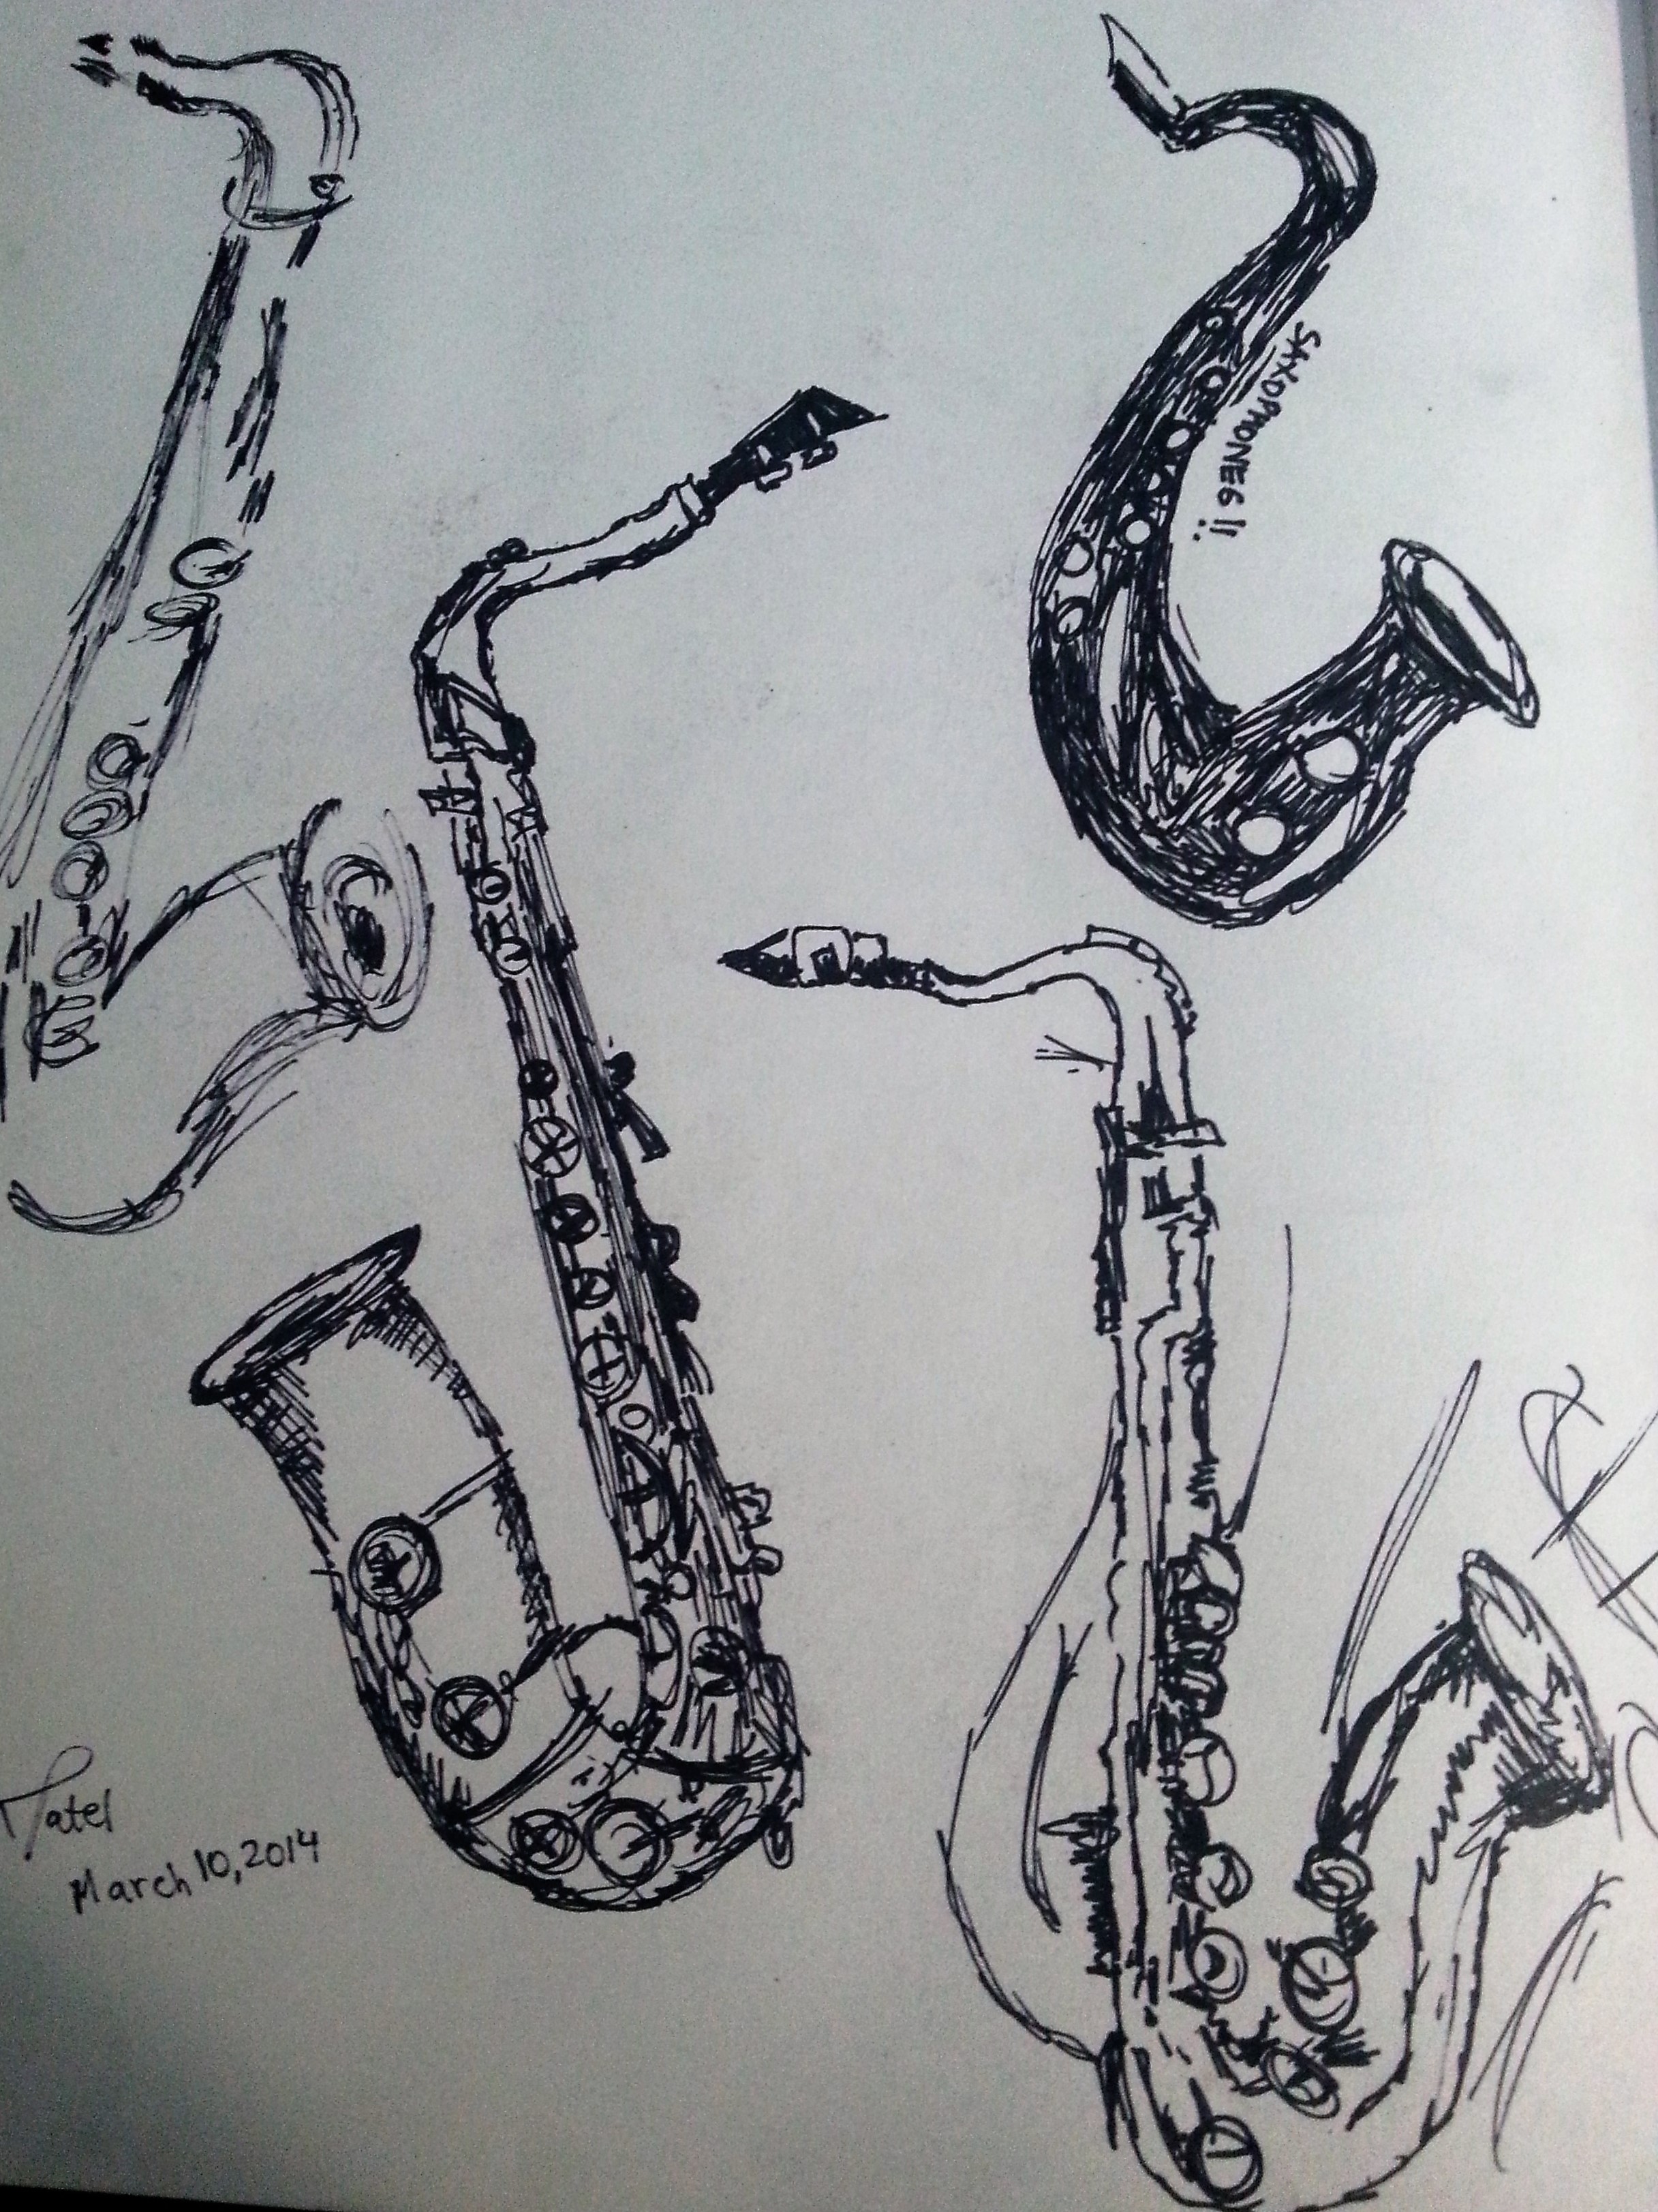 SAXOPHONES !!
Matel
March 10, 2014